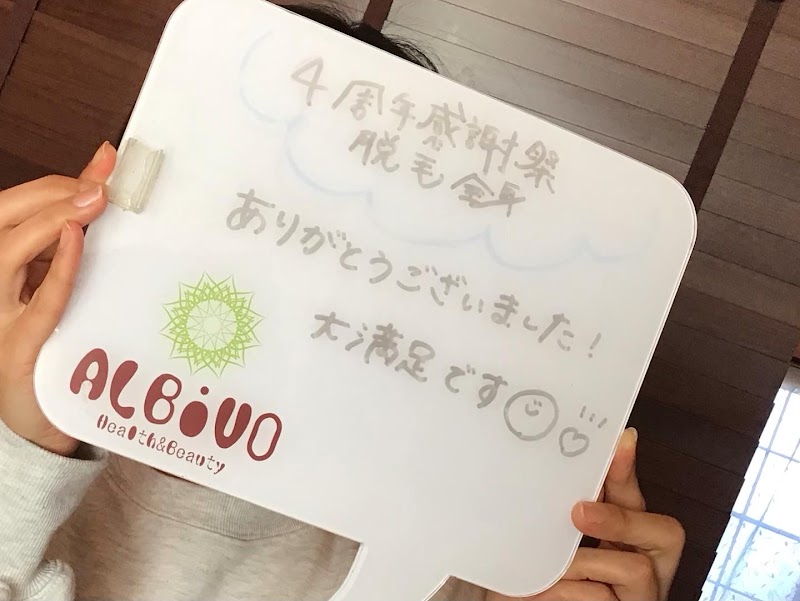 4周年感謝祭
脱毛全身
ありがとうございました!
大満足です
ALBiVO
Health&Beauty